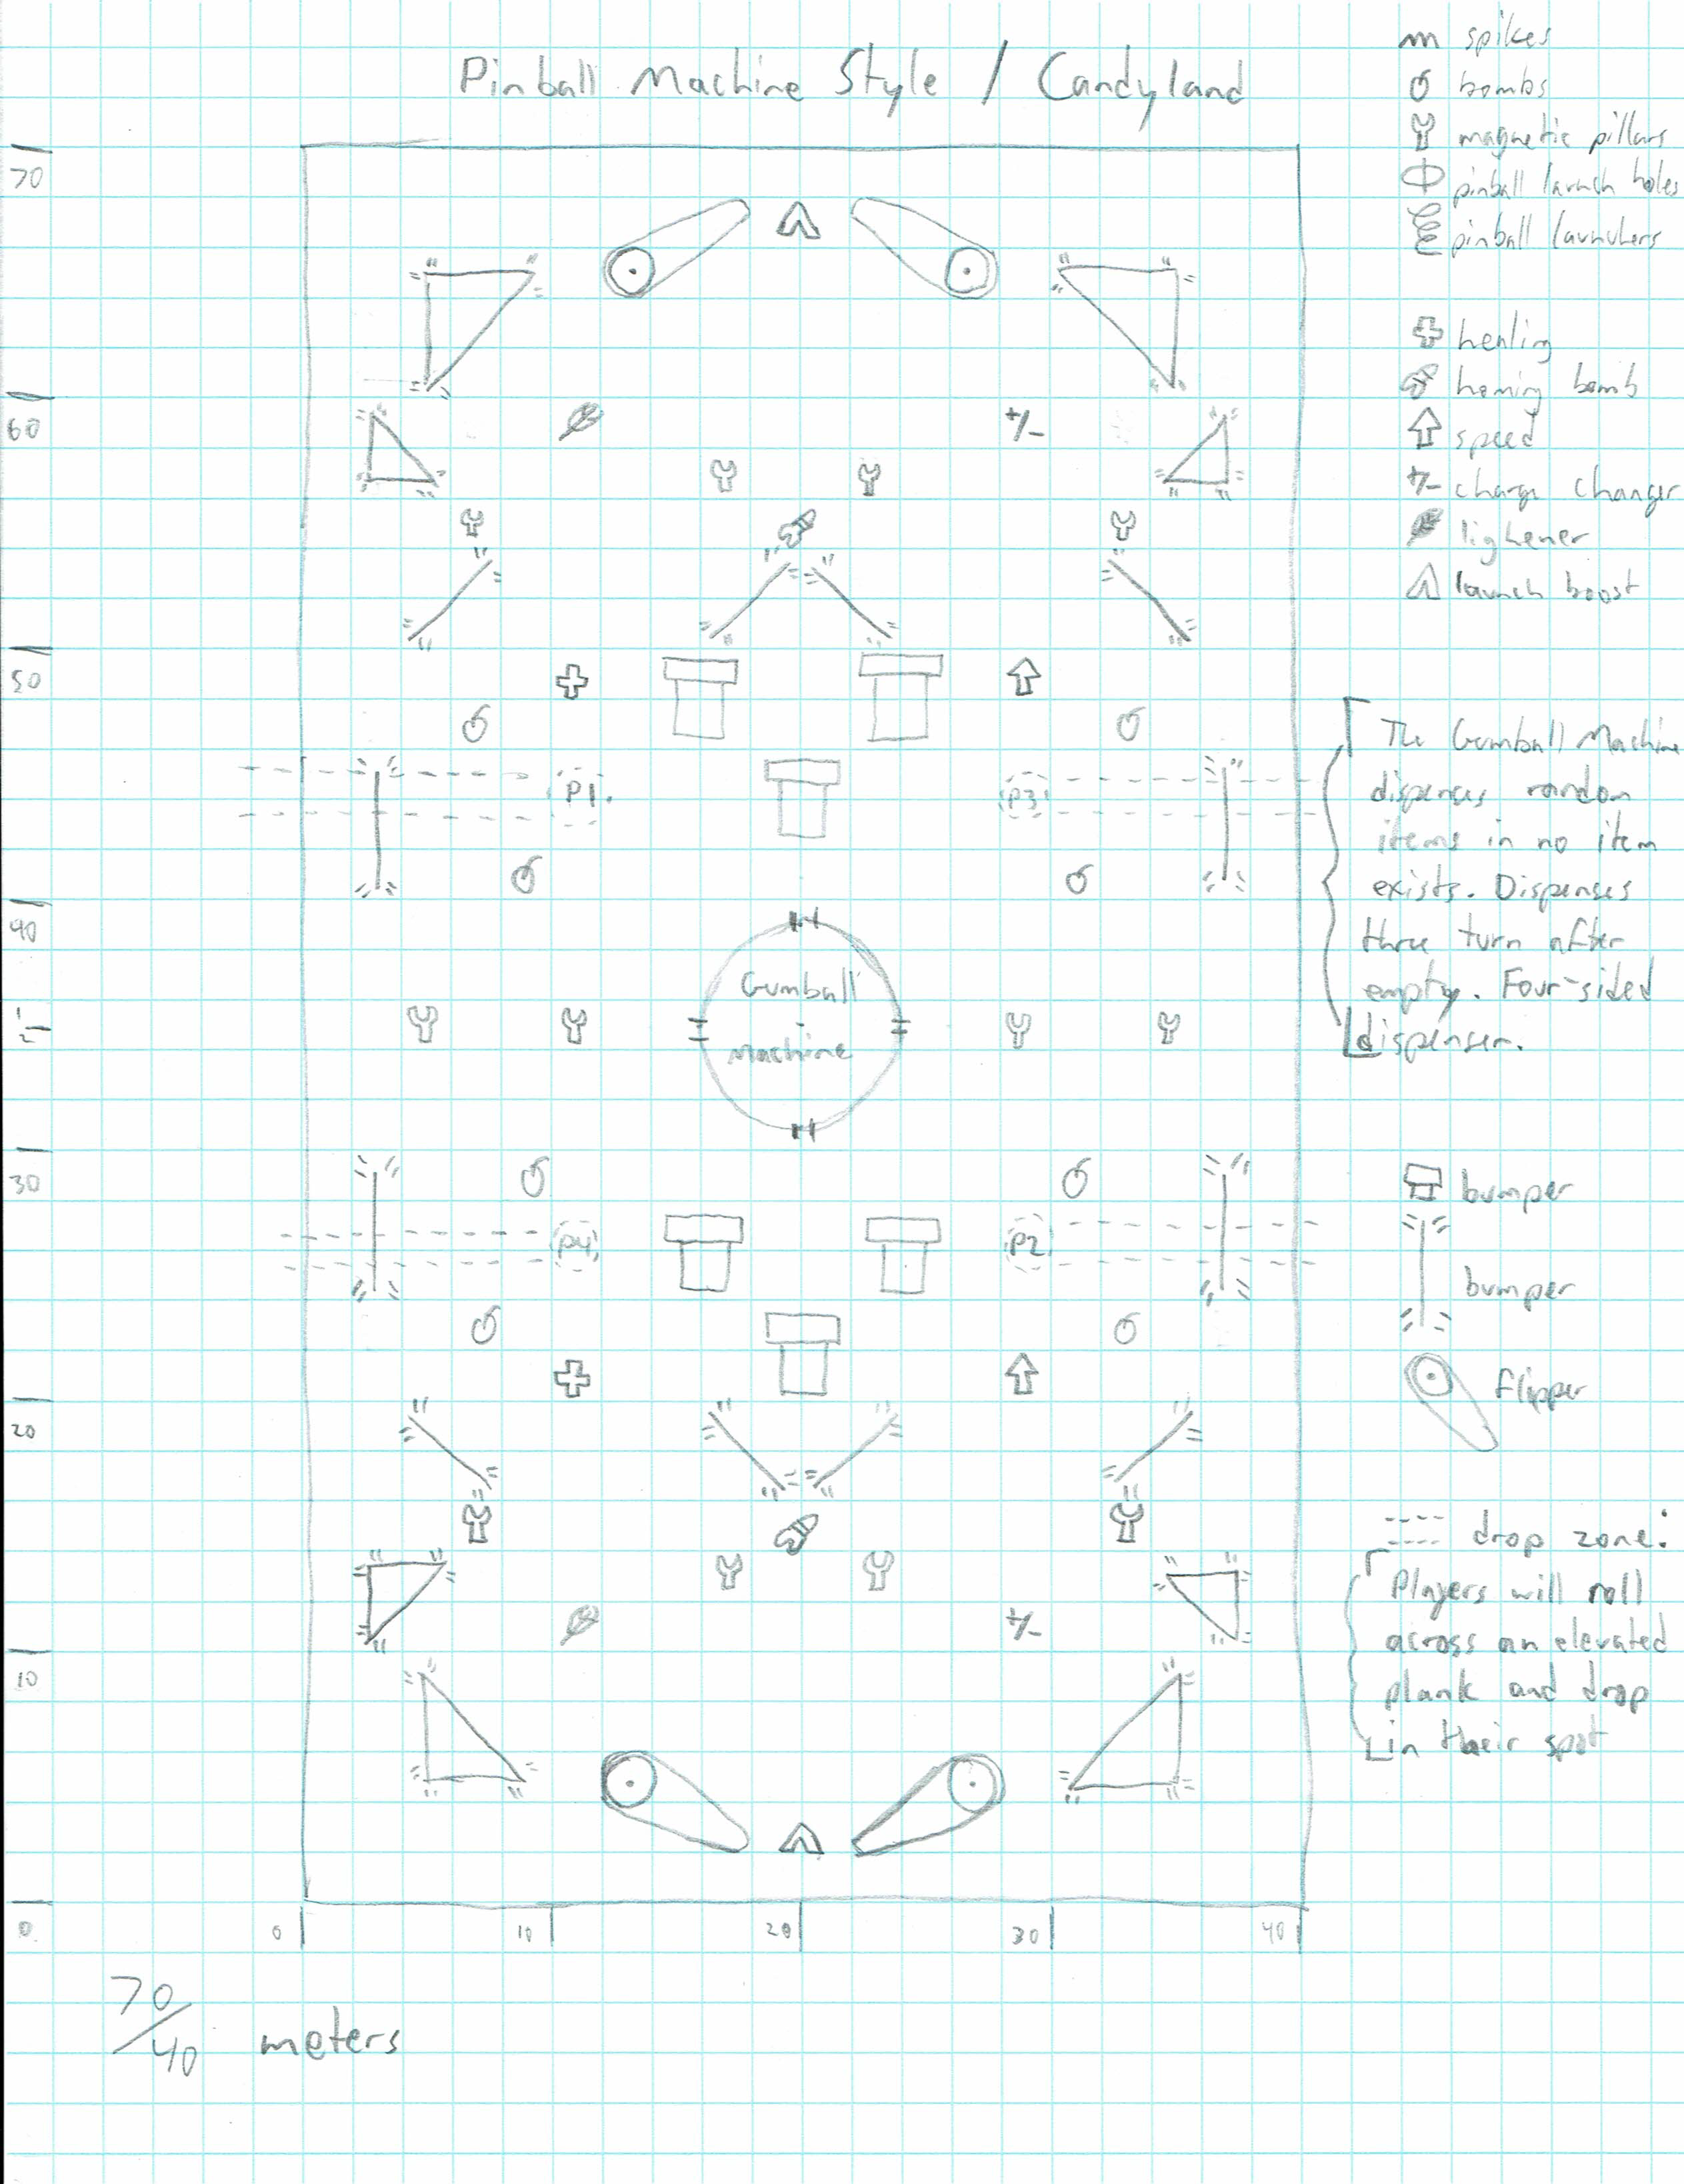 Pinball Machine Style / Candyland
spikes
bombs
magnetic pillars
pinball launch holes
pinball launchers
healing
homing bomb
speed
+/- charge changer
lighener
launch boost
70
60
+/-
50
P1.
P3
The Gumball Machine
dispenses random
items in no item
exists. Dispenses
three turn after
empty. Four-sided
dispenser.
40
Gumball
Machine
1/2
30
P4
P2
bumper
bumper
flipper
20
drop zone:
Players will roll
across an elevated
plank and drop
in their spot
+/-
10
0
0 10 20 30 40
70/40 meters